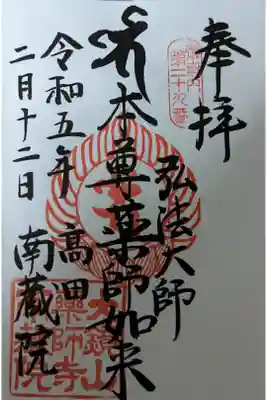 奉拝
第二十九番
弘法大師
本尊薬師如来
令和五年 高田
二月十二日 南蔵院
大鏡山
薬師寺
南蔵院